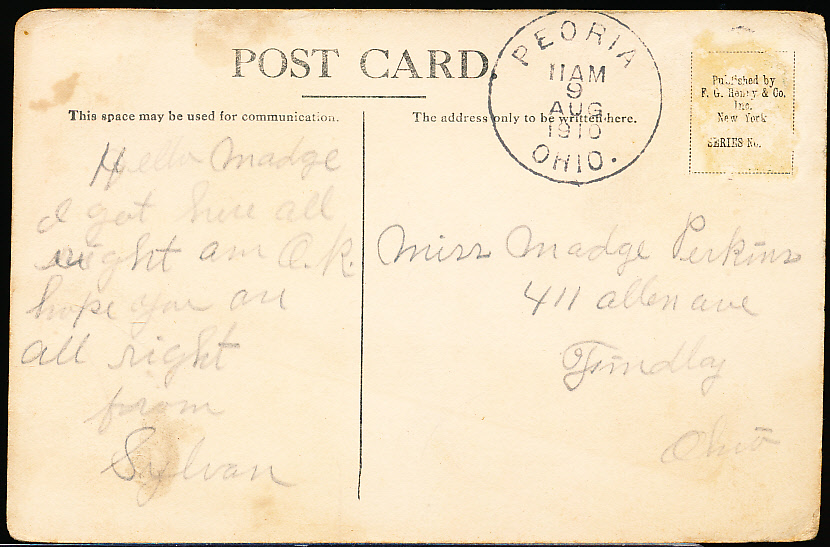 POST CARD.
This space may be used for communication.
The address only to be written here.
PEORIA
11 AM
9
AUG
1910
OHIO.
Published by
F. G. Henry & Co.
Inc.
New York
SERIES No.
Hello Madge
I got here all
right am O.K.
hope you are
all right
from
Sylvan
Miss Madge Perkins
411 allen ave
Findlay
Ohio